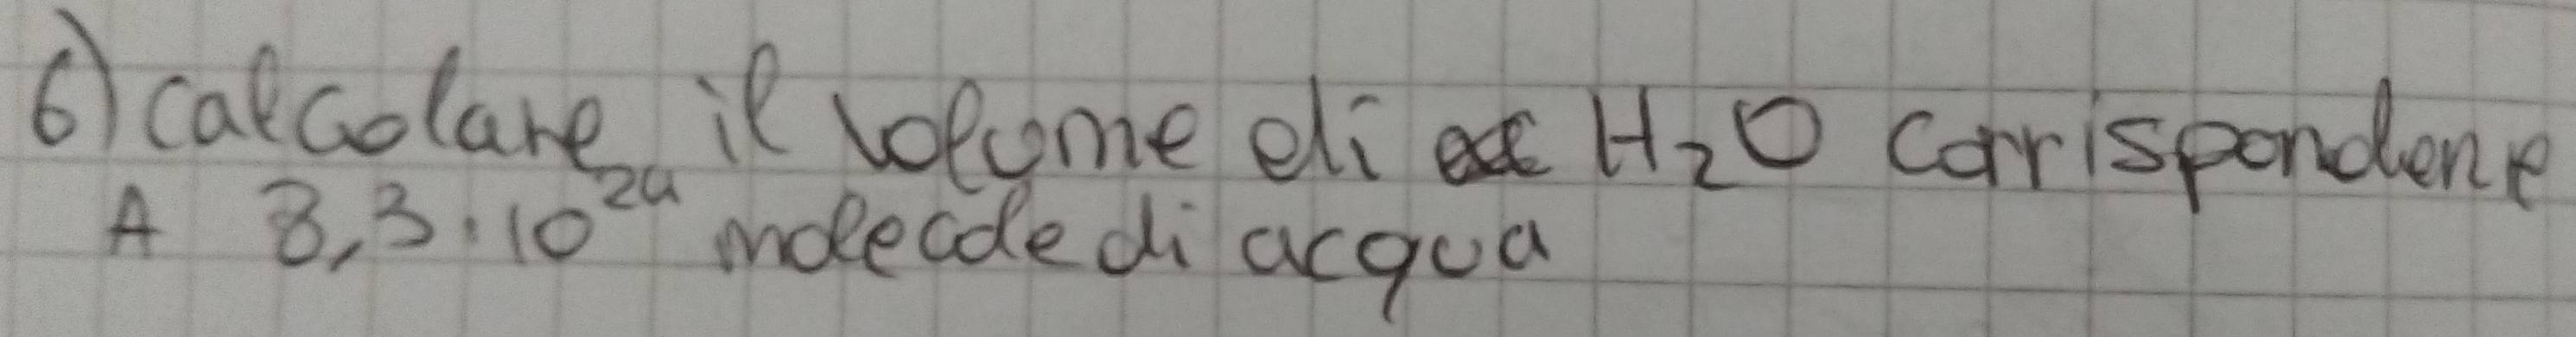 6) calcolare il volume di H₂O corrispondene
A 3,3·10²⁴ molecole di acqua